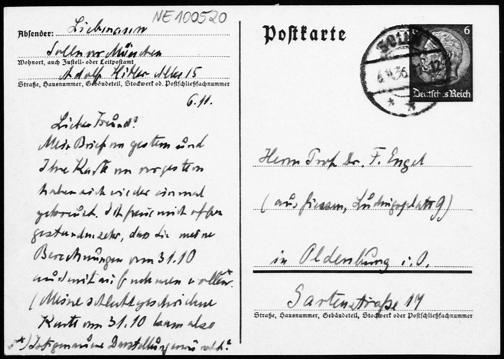 NE 100520
Absender: Liebmann
Solln vor München
Wohnort, auch Zustell- oder Leitpostamt
Adolf Hitler Allee 15
Straße, Hausnummer, Gebäudeteil, Stockwerk od. Postschließfachnummer
6.11.
Lieber Freund!
Mein Brief von gestern und
Ihre Karte von vorgestern
haben sich wieder einmal
gekreuzt. Ich freue mich offen
gestanden sehr, dass Sie meine
Berechnungen vom 31.10
noch mit aufnehmen wollen.
(Meine schlecht geschriebene
Karte vom 31.10 kann also
Postkarte
SOLLN
6.11.36
6
Deutsches Reich
Herrn Prof. Dr. F. Engel
(aus Giessen, Ludwigsplatz 9)
in Oldenburg i. O.
Gartenstraße 17
Straße, Hausnummer, Gebäudeteil, Stockwerk oder Postschließfachnummer